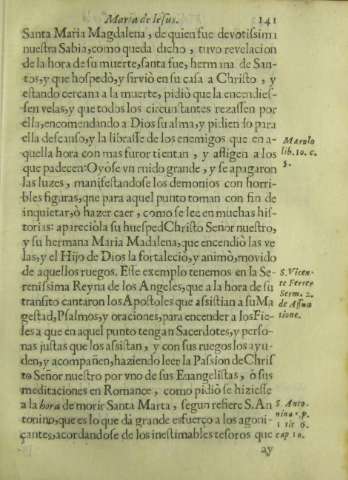 Maria de Iesus. 141
Santa Maria Magdalena, de quien fue devotissima
nuestra Sabia, como queda dicho, tuvo revelacion
de la hora de su muerte, santa fue, hermana de San-
tos, y que hospedò, y sirviò en su casa a Christo, y
estando cercana a la muerte, pidiò que la encendies-
sen velas, y que todos los circunstantes rezassen por
ella, encomendando a Dios su alma, y pidiendo para
ella descanso, y la librasse de los enemigos que en a-
quella hora con mas furor tientan, y afligen a los
que padecen: Oyòse vn ruido grande, y se apagaron
las luzes, manifestandose los demonios con horri-
bles figuras, que para aquel punto toman con fin de
inquietar, ò hazer caer, como se lee en muchas his-
torias: apareciòla su huesped Christo Señor nuestro,
y su hermana Maria Madalena, que encendiò las ve
las, y el Hijo de Dios la fortaleciò, y animò, movido
de aquellos ruegos. Este exemplo tenemos en la Se-
renissima Reyna de los Angeles, que a la hora de su
transito cantaron los Apostoles que assistian a su Ma
gestad, Psalmos, y oraciones, para encender a los Fie-
les a que en aquel punto tengan Sacerdotes, y perso-
nas justas que los assistan, y con sus ruegos los ayu-
den, y acompañen, haziendo leer la Passion de Chris
to Señor nuestro por vno de sus Euangelistas, ò sus
meditaciones en Romance, como pidiò se hiziesse
a la hora de morir Santa Marta, segun refiere S. An
tonino, que es lo que dà grande esfuerço a los agoni-
çantes, acordandose de los inestimables tesoros que
ay
Marolo
lib. 10. c.
5.
S. Vicen-
te Ferrer
Serm. 2.
de Assum
tione.
S. Anto-
nino
cap 10.